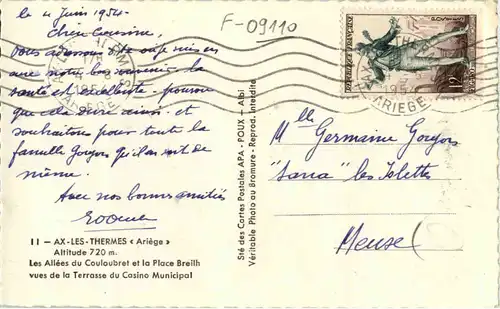 le 4 Juin 1954.
F-09110
Chère Cousine,
vous adressons de
Ax notre bon souvenir la
santé est excellente pourvu
que cela dure ainsi et
souhaitons pour toute la
famille qu'il en soit de
même.
Avec nos bonnes amitiés
11 — AX-LES-THERMES « Ariège »
Altitude 720 m.
Les Allées du Couloubret et la Place Breilh
vues de la Terrasse du Casino Municipal
Sté des Cartes Postales APA - POUX - Albi
Véritable Photo au Bromure - Reprod. interdite
ARIEGE
Mlle Germaine
les Islettes
Meuse